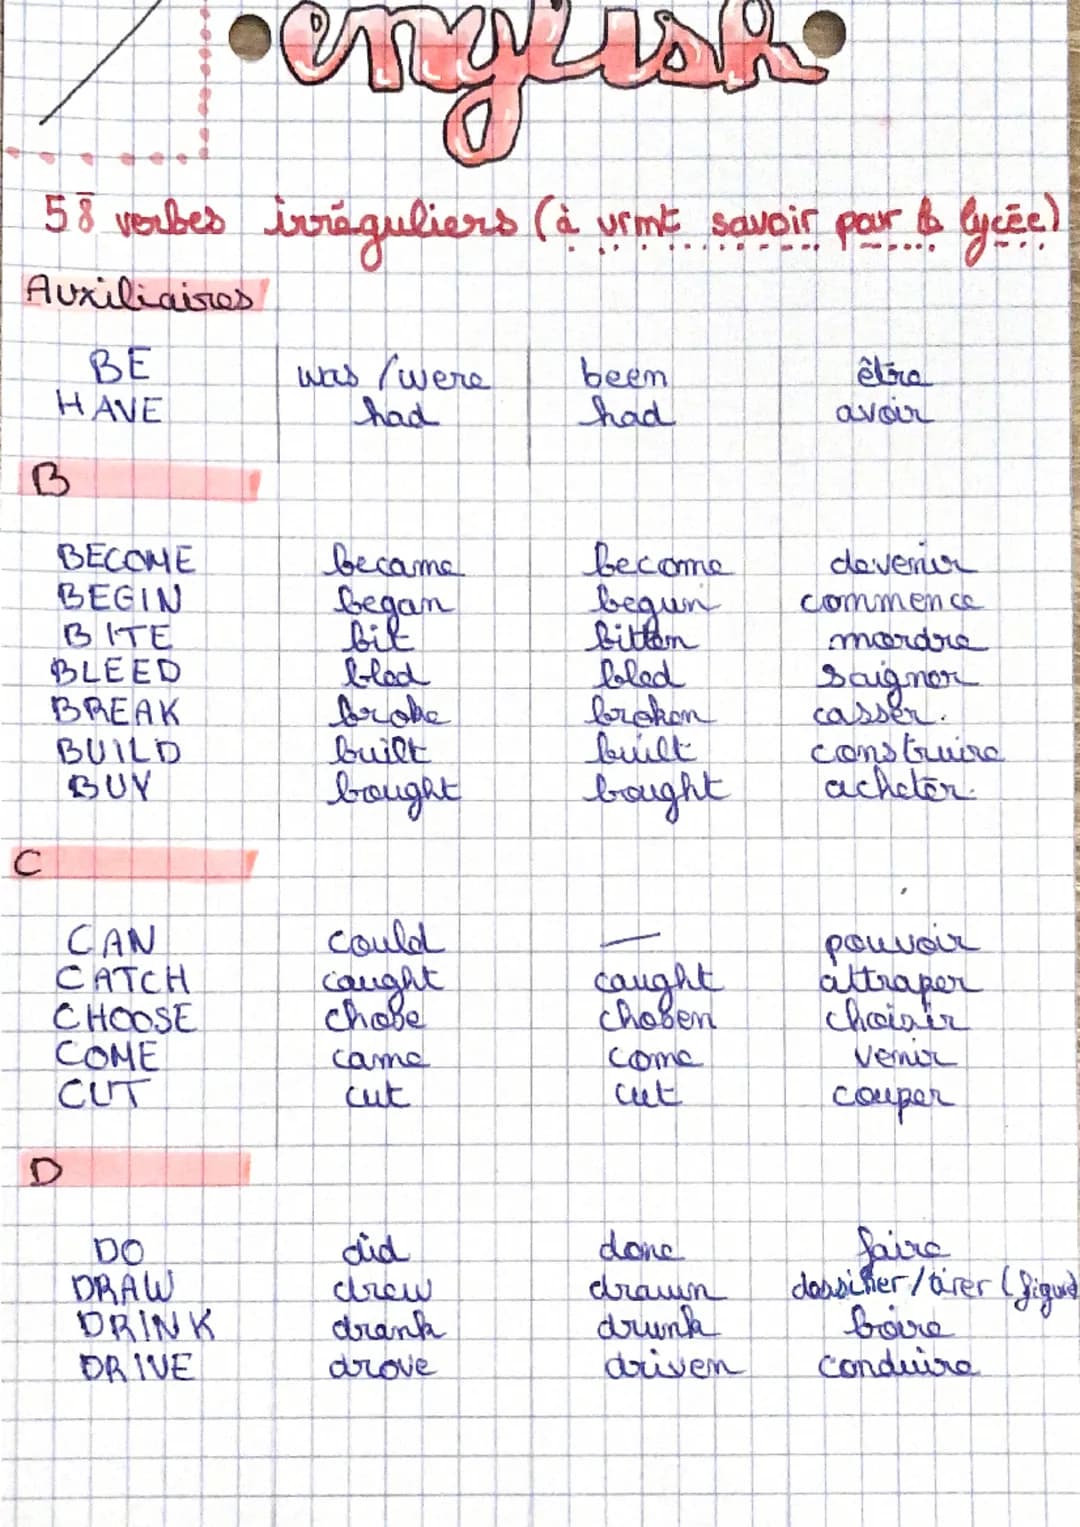 english
58 verbes irréguliers (à vrmt savoir par le lycée)
Auxiliaires
BE was / were been être
HAVE had had avoir
B
BECOME became become devenir
BEGIN began begun commence
BITE bit bitten mordre
BLEED bled bled saigner
BREAK broke broken casser.
BUILD built built construire
BUY bought bought acheter.
C
CAN could — pouvoir
CATCH caught caught attraper
CHOOSE chose chosen choisir
COME came come venir
CUT cut cut couper
D
DO did done faire
DRAW drew drawn dessiner / tirer (figuré
DRINK drank drunk boire
DRIVE drove driven conduire